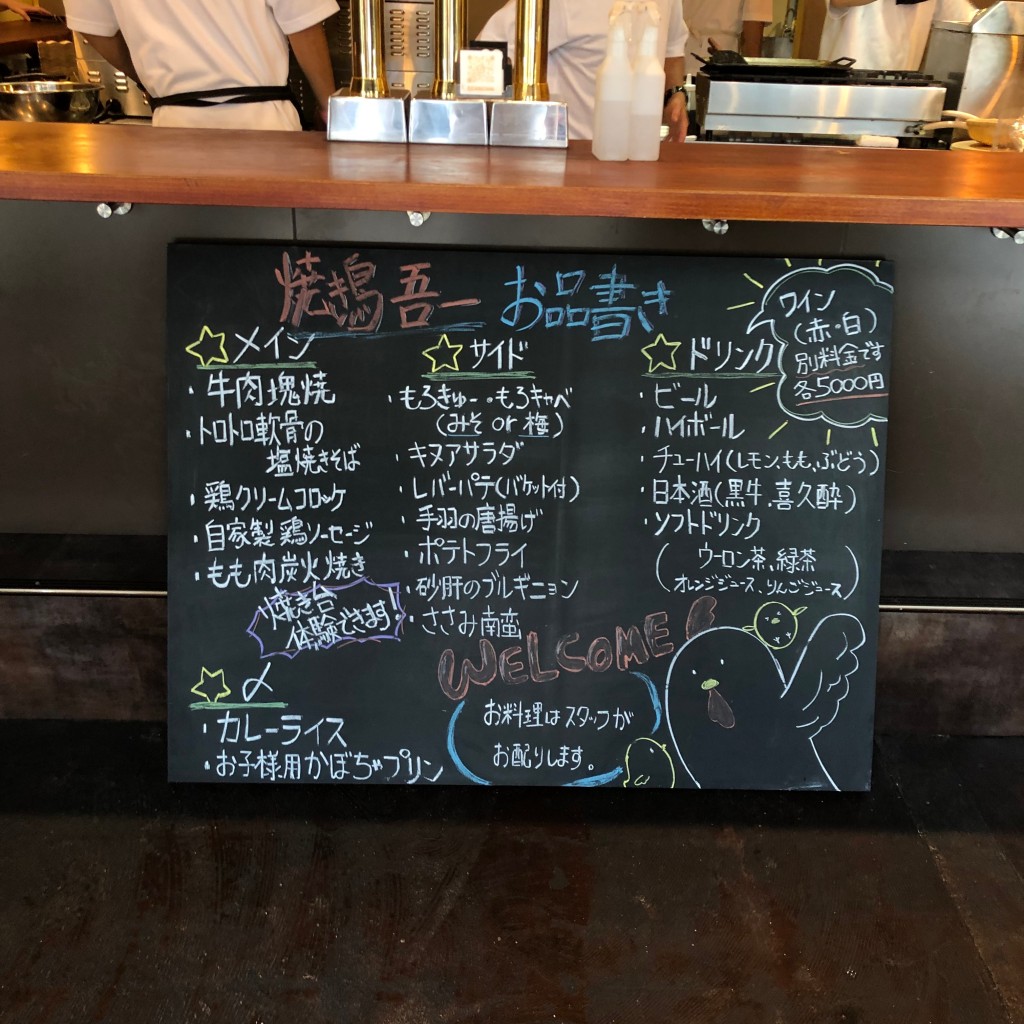 焼き鳥 吾一 お品書き
☆メイン
・牛肉塊焼
・トロトロ軟骨の
塩焼きそば
・鶏クリームコロッケ
・自家製鶏ソーセージ
・もも肉炭火焼き
焼き台
体験できます!
☆〆
・カレーライス
・お子様用かぼちゃプリン
☆サイド
・もろきゅー・もろキャベ
(みそ or 梅)
・キヌアサラダ
・レバーパテ(バケット付)
・手羽の唐揚げ
・ポテトフライ
・砂肝のブルギニョン
・ささみ南蛮
☆ドリンク
・ビール
・ハイボール
・チューハイ(レモン、もも、ぶどう)
・日本酒(黒牛、喜久酔)
・ソフトドリンク
(ウーロン茶、緑茶
オレンジジュース、りんごジュース)
ワイン
(赤・白)
別料金です
各5000円
WELCOME!
お料理はスタッフが
お配りします。